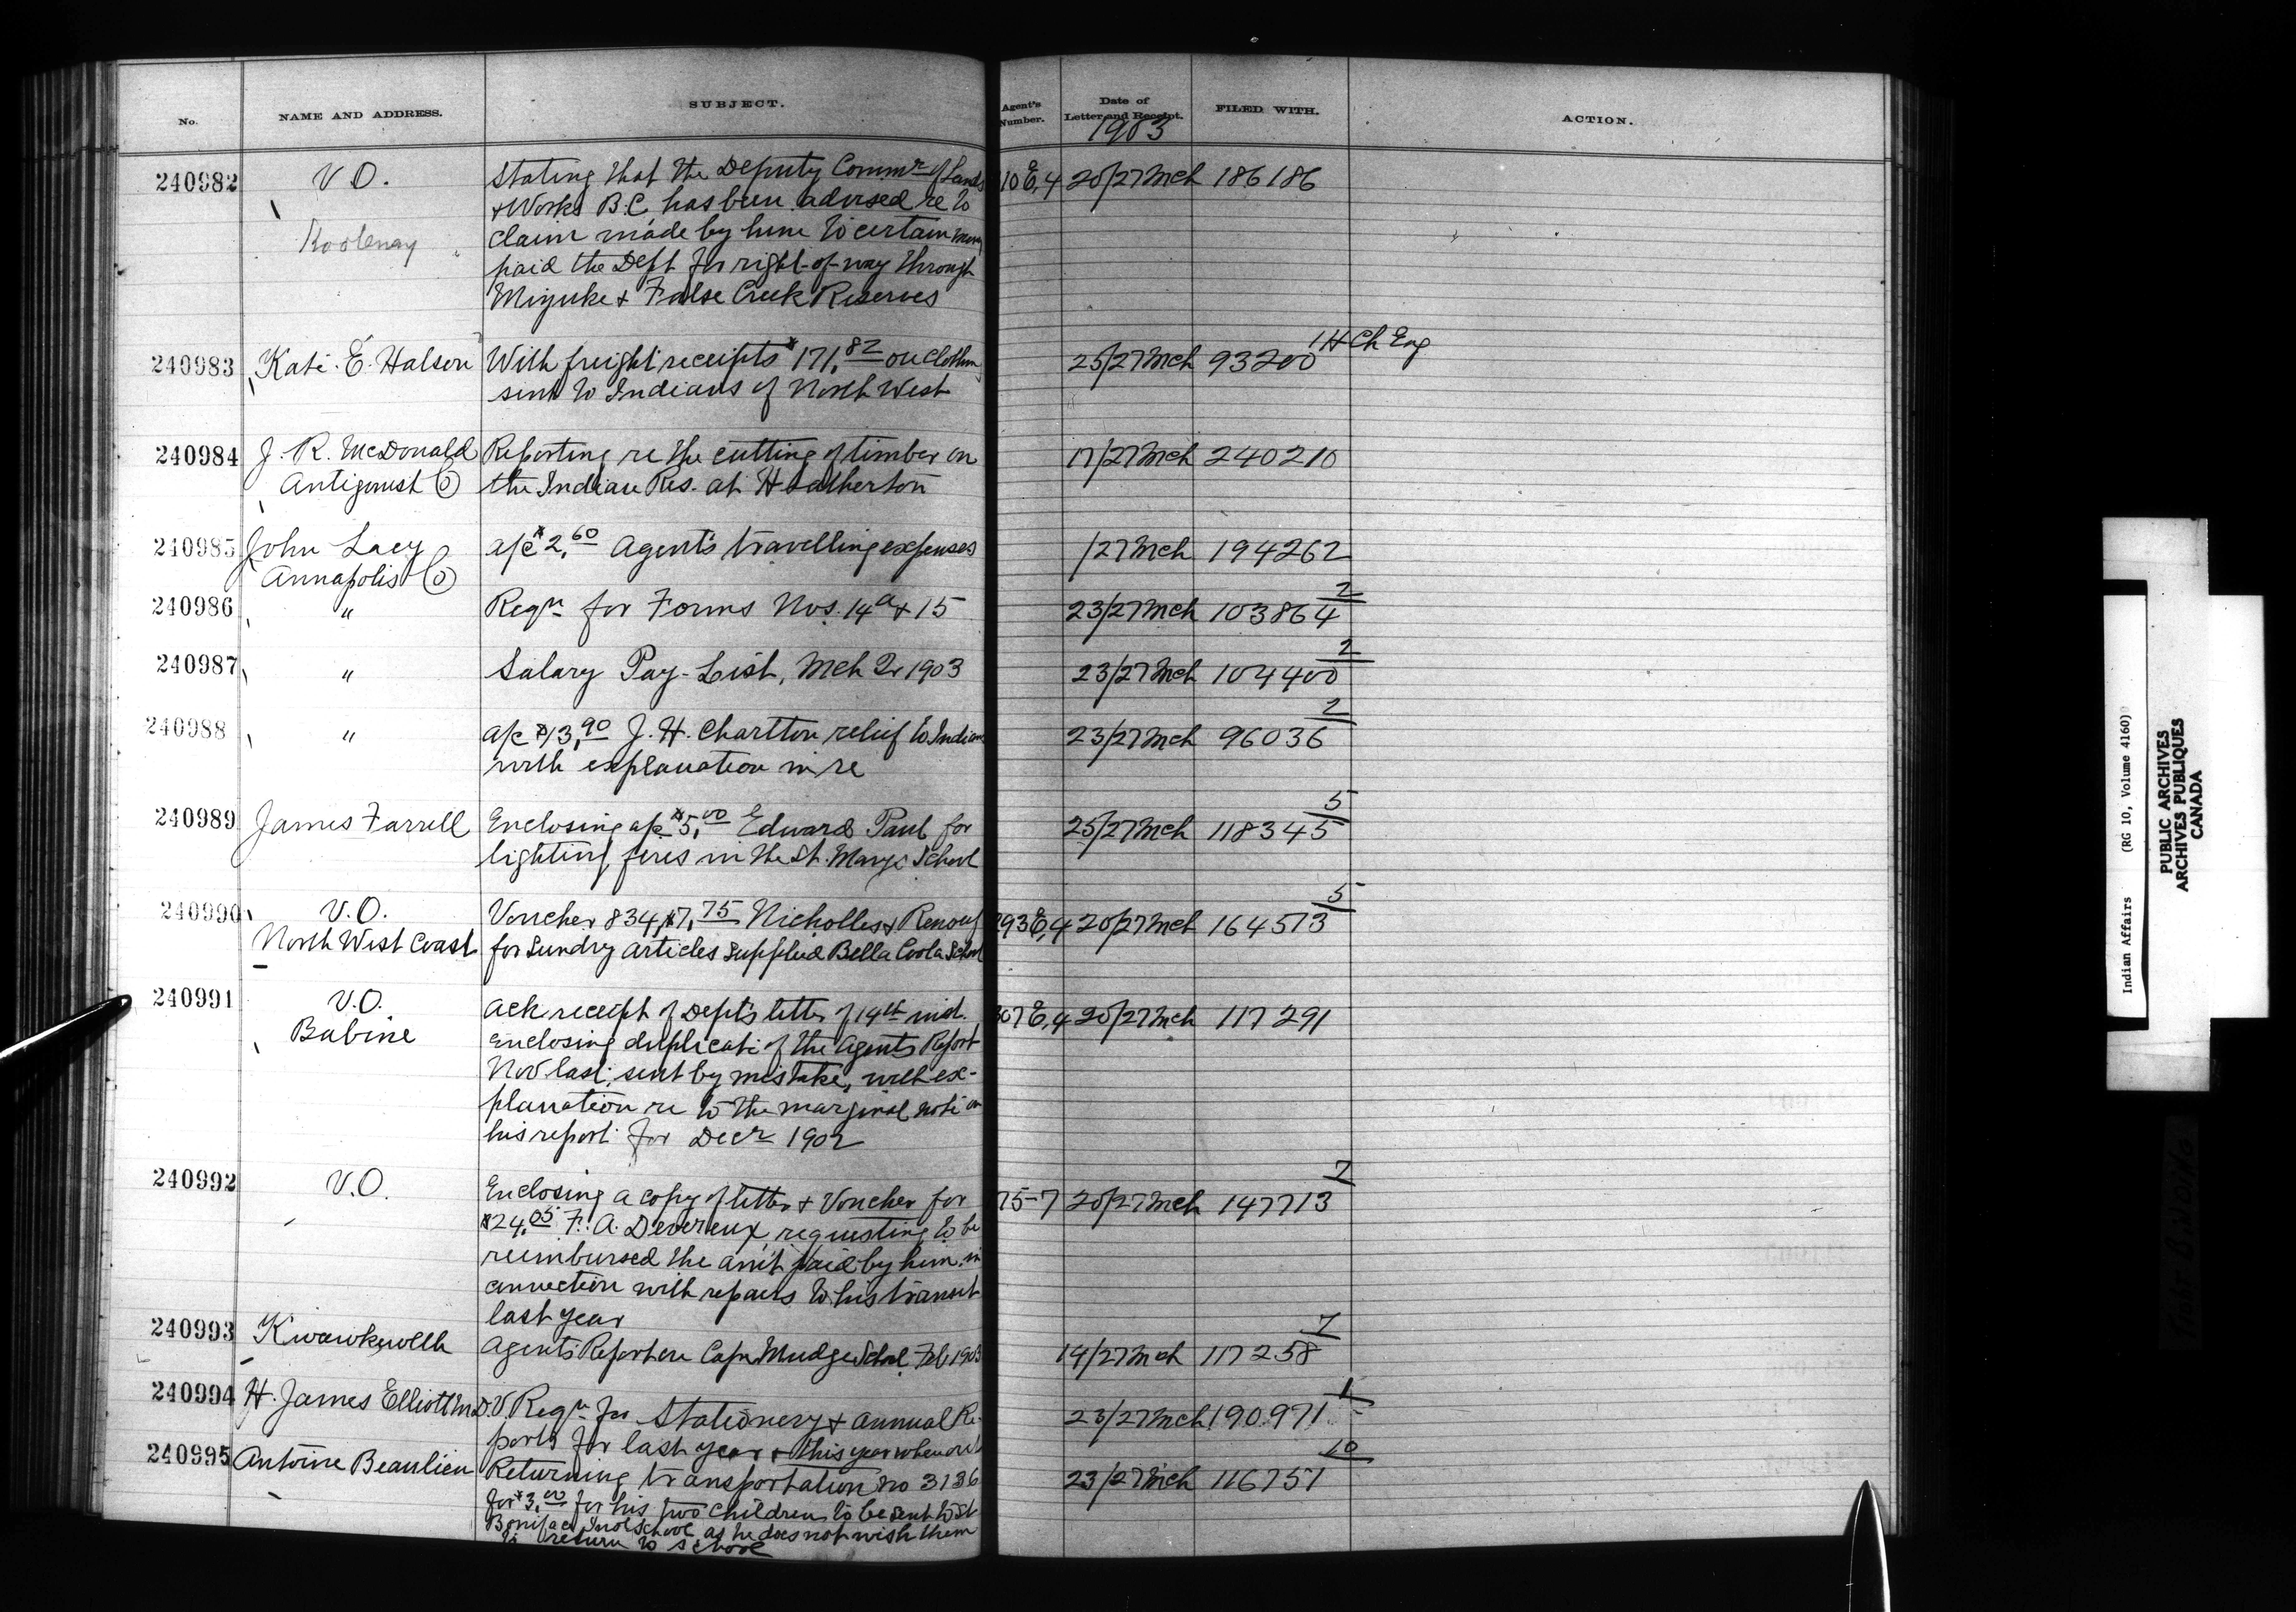 No. NAME AND ADDRESS. SUBJECT. Agent's Number. Date of Letter and Receipt. FILED WITH. ACTION.
1903
240982 V.O. Stating that the Deputy Commr of Lands 10 E,4 20/27 Mch 186186
& Works B.C. has been advised re to
Kootenay claim made by him to certain money
paid the Dept for right-of-way through
& False Creek Reserves
1 H Ch Eng
240983 Kate E. Halson With freight receipts $171.82 on clothing 25/27 Mch 93200
sent to Indians of North West
240984 J. R. McDonald Reporting re the cutting of timber on 17/27 Mch 240210
Antigonish Co the Indian Res. at Heatherton
240985 John Lacy a/c $2.60 Agent's travelling expenses /27 Mch 194262
Annapolis Co
2
240986 " Reqn for Forms Nos. 14a & 15 23/27 Mch 103864
2
240987 " Salary Pay-List, Mch Qr 1903 23/27 Mch 104400
2
240988 " a/c $13.90 J. H. Charlton relief to Indians 23/27 Mch 96036
with explanation in re
5
240989 James Farrell Enclosing a/c $5.00 Edward Paul for 25/27 Mch 118345
lighting fires in the St. Mary's School
5
240990 V.O. Voucher 834, $7.75 Nicholles & Renouf 293 E,4 20/27 Mch 164573
North West Coast for Sundry articles supplied Bella Coola School
240991 V.O. Ack receipt of Dept's letter of 14th inst. 307 E,4 20/27 Mch 117291
Babine enclosing duplicate of the Agents Report
Nov last, sent by mistake, with ex-
planation re to the marginal note on
his report for Decr 1902
7
240992 V.O. Enclosing a copy of letter & Voucher for 75-7 20/27 Mch 147713
$24.05 F. A. Devereux, requesting to be
reimbursed the am't paid by him in
connection with repairs to his transit
last year
7
240993 Kwawkewlth Agents Report re Cape Mudge School Feb 1903 14/27 Mch 117258
1
240994 H. James Elliott M.D. V. Reqn for Stationery & annual Re- 23/27 Mch 190971
ports for last year & this year when out
10
240995 Antoine Beaulieu Returning transportation No 3136 23/27 Mch 116751
for $3.00 for his two children to be sent to St.
Boniface Indl School as he does not wish them
to return to school
Indian Affairs (RG 10, Volume 4160)
PUBLIC ARCHIVES
ARCHIVES PUBLIQUES
CANADA
TIGHT BINDING